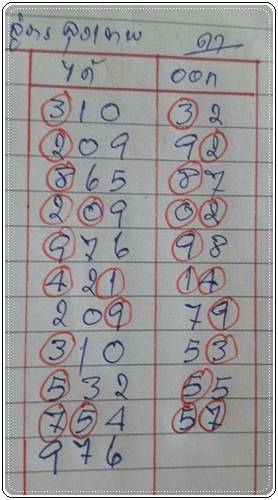 สูตร ลุงเทพ ดา
ได้ ออก
310 32
209 92
865 87
209 02
976 98
421 14
209 79
310 53
532 55
754 57
976